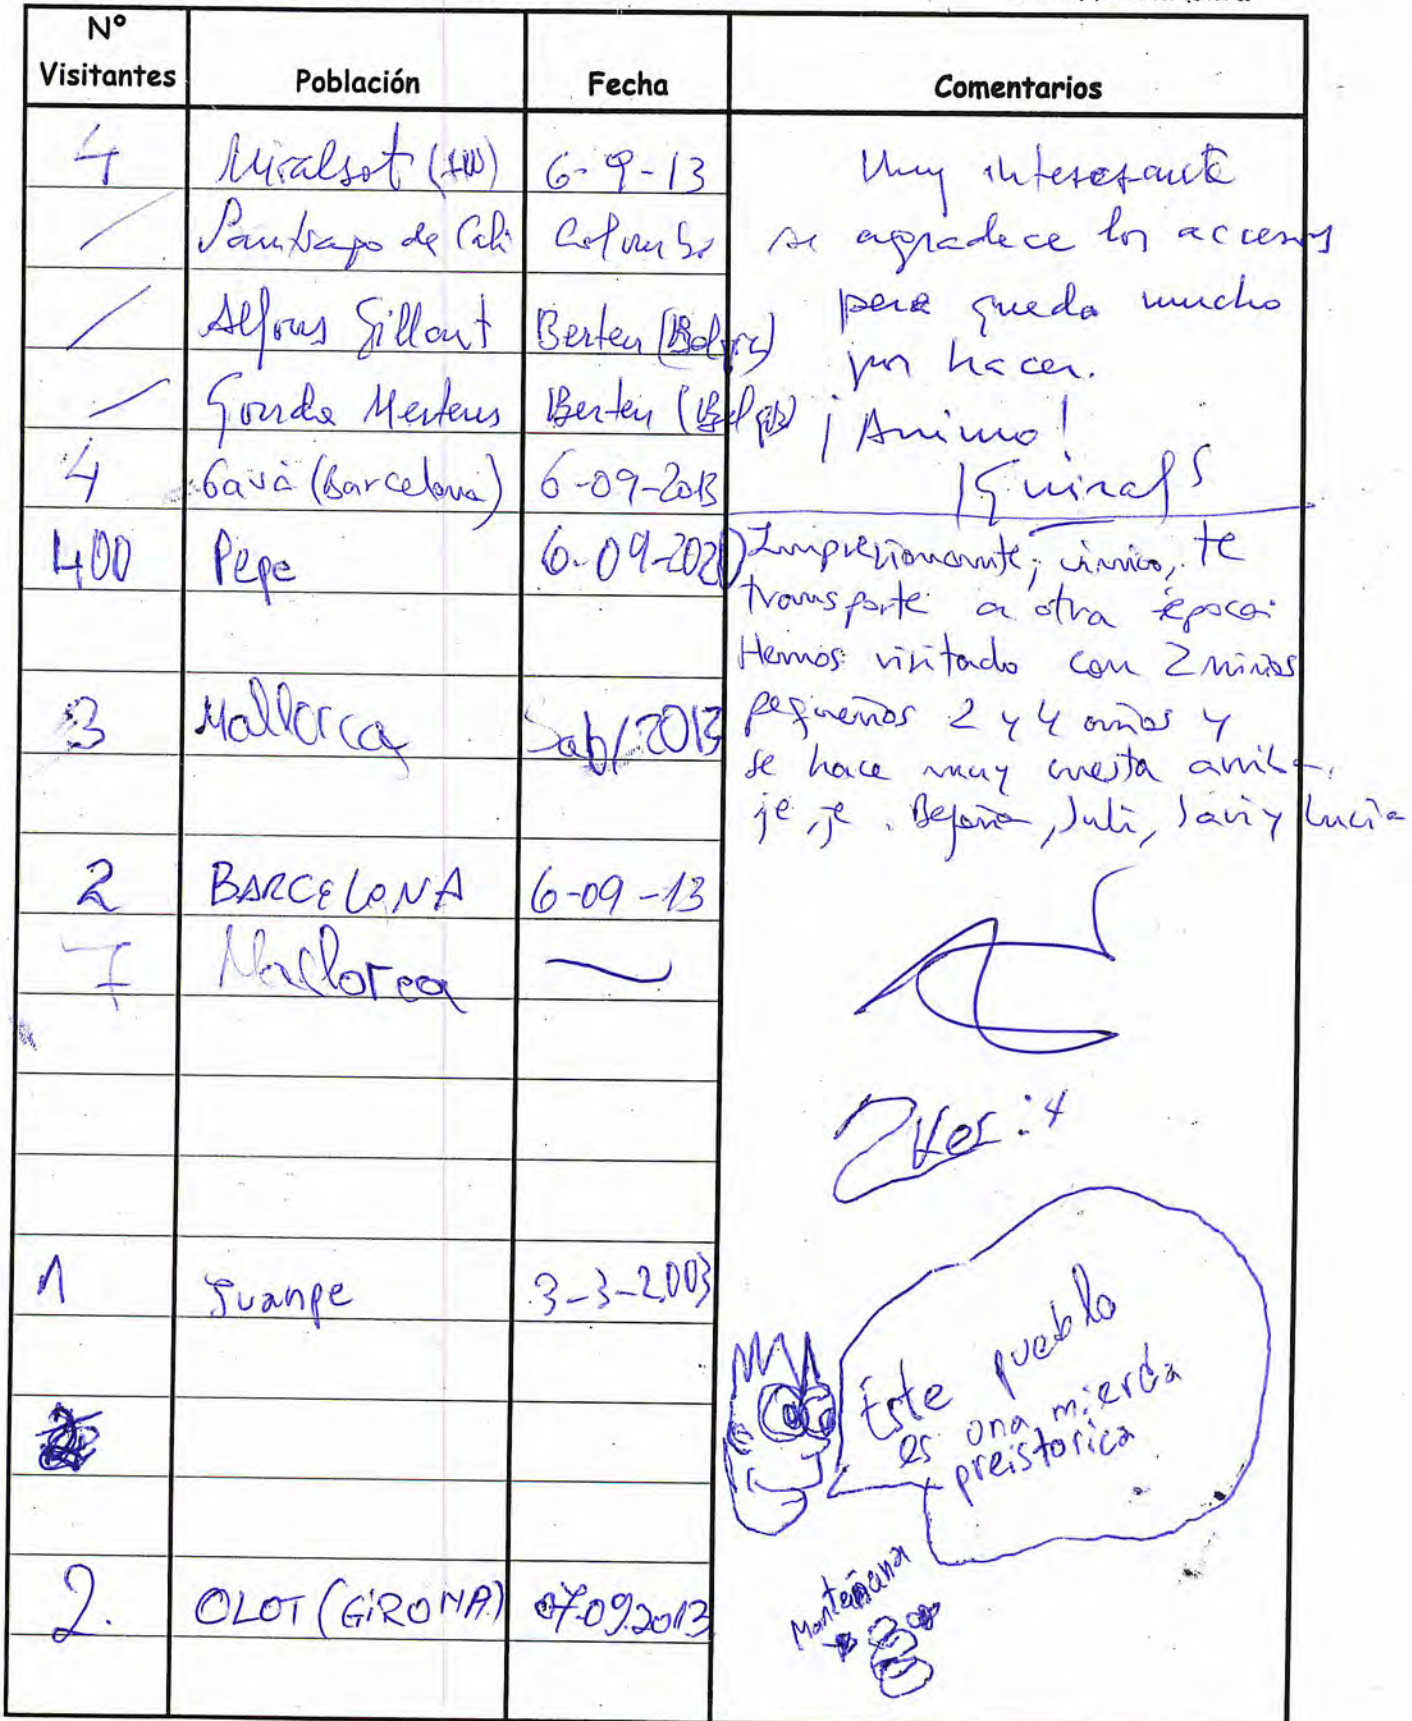 Nº
Visitantes Población Fecha Comentarios
4 Miralsot (HU) 6-9-13 Muy interesante
/ Santiago de Cali Colombia se agradece los accesos
/ Alfons Gillout Berten (Belgic) pero queda mucho
por hacer.
/ Gonda Mertens Berten (Belgic) ¡Animo!
4 Gavà (Barcelona) 6-09-2013
400 Pepe 6-09-202 Impresionante, único, te
transporte a otra época.
Hemos visitado con 2 niños
3 Mallorca Sab/2013 pequeños 2 y 4 años y
se hace muy cuesta arriba,
je, je. Begoña, Juli, Javi y Lucia
2 BARCELONA 6-09-13
7 Mallorca
1 Juanpe 3-3-2003
Este pueblo
es una mierda
preistorica
2. OLOT (GIRONA) 07.09.2013
Montañana